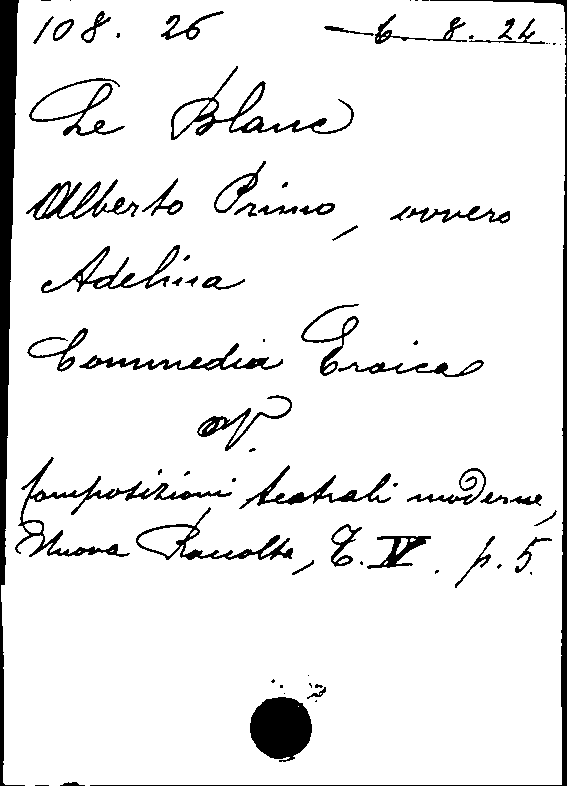 108. 26 6. 8. 24
Le Blanc
Alberto Primo, ovvero
Adelina
Commedia Eroica
in
Composizioni teatrali moderne,
Nuova Raccolta, T. IV. p. 5.